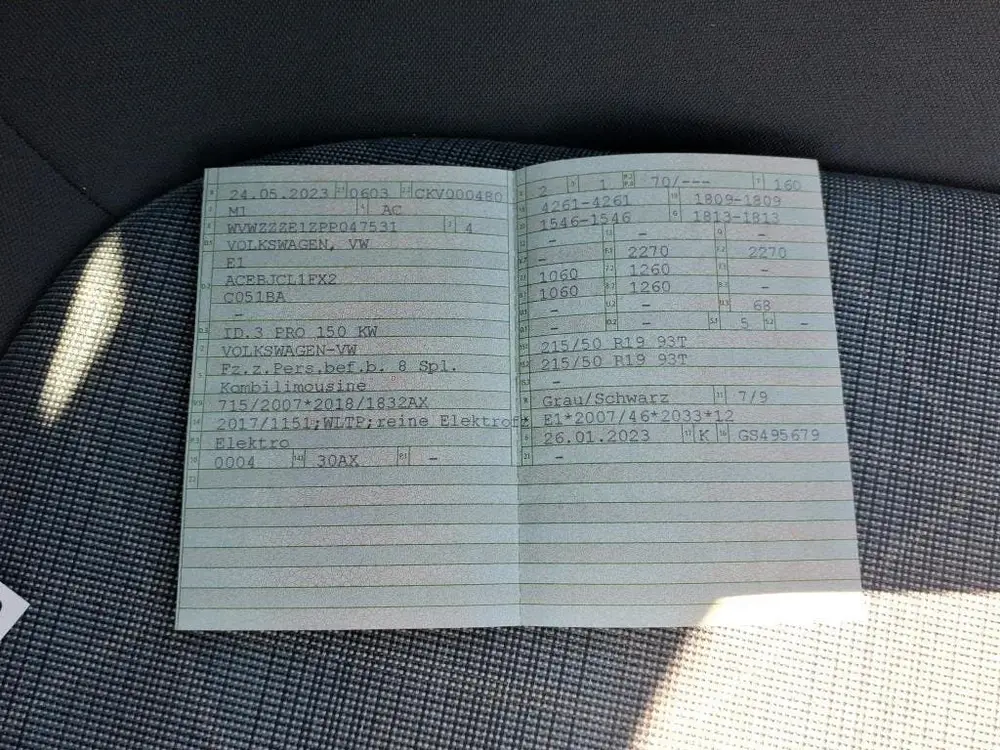 24.05.2023 0603 CKV000480
M1 AC
WVWZZZE1ZPP047531 4
VOLKSWAGEN, VW
E1
ACEBJCL1FX2
C051BA
-
ID.3 PRO 150 KW
VOLKSWAGEN-VW
Fz.z.Pers.bef.b. 8 Spl.
Kombilimousine
715/2007*2018/1832AX
2017/1151;WLTP;reine Elektrofz
Elektro
0004 30AX -
2 1 70/--- 160
4261-4261 1809-1809
1546-1546 1813-1813
- - -
- 2270 2270
1060 1260 -
1060 1260 -
- - 68
- - 5 -
215/50 R19 93T
215/50 R19 93T
-
Grau/Schwarz 7/9
E1*2007/46*2033*12
26.01.2023 K GS495679
-